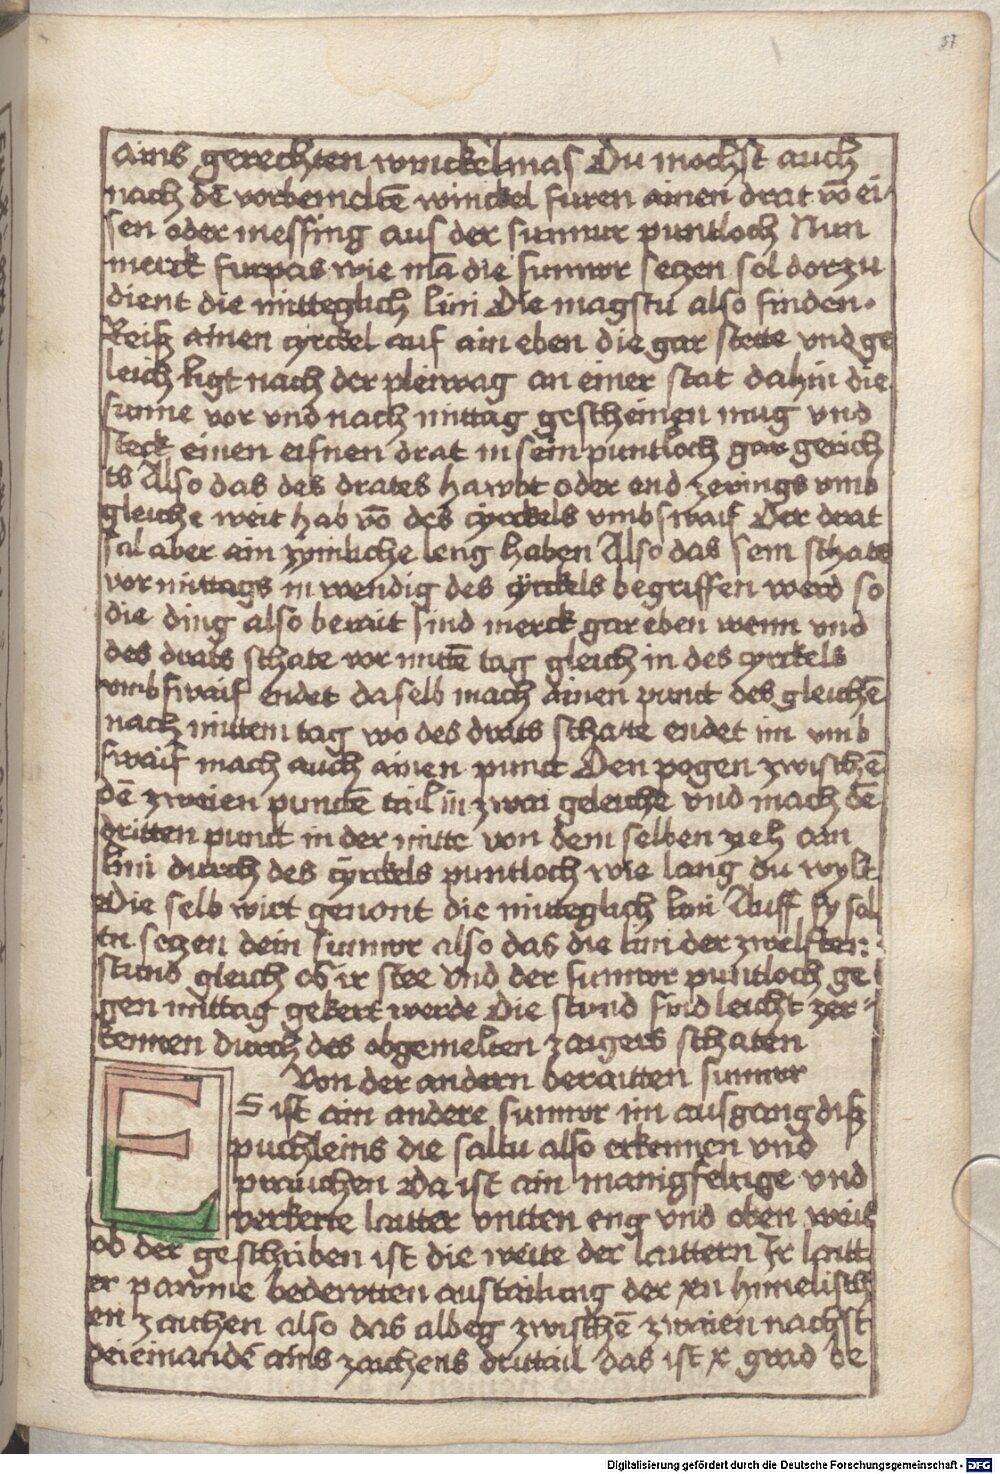 57
ains gerechten winckelmas Du mochst auch
nach dē vorbemeltē winckel furen ainen drat vō ei
sen oder messing aus der sunnur puntloch Nun
merck furpas wie mā die sunnor seczen sol dorzu
dient die mitteglich lini Die magstu also finden.
Reiß ainen cyrckel auf ain eben die gar stette vnd ge
leich ligt nach der pleiwag an einer stat dahin die
sunne vor vnd nach mittag gescheinen mug vnd
steck einen eisnen drat in sein puntloch gar gerich
ts Also das des drates hawbt oder end zerings vmb
gleiche weit hab vō des cyrckels vmbswaif Der drat
sal aber ain zymliche leng haben Also das sein schate
vor mittags inwendig des cyrckels begriffen werd so
die ding also berait sind merck gar eben wenn vnd
des drats schate vor mittē tag gleich in des cyrckels
vmbswaif endet daselb mach ainen punct des gleichē
nach mittem tag wo des drats schate endet im vmb
swaif mach auch ainen punct Den pogen zwischē
dē zwaien punctē tail in zwai geleiche vnd mach dē
dritten punct in der mitte von dem selben zieh ain
lini durch des cyrckels puntloch wie lang du wylt
Die selb wirt genont die mitteglich lini Auff sy sol
tu seczen dein sunnor also das die lini der zwelften
stund gleich ob ir stee vnd der sunnor puntloch ge
gen mittag gekert werde Die stund sind leicht zer
kennen durch des obgemelten zaigers schaten
Von der andern beraitten sunnor
ES ist ain andere sunnor im ausgang diß
puchleins die saltu also erkennen vnd
prauchen Da ist ain manigfeltige vnd
verkerte laitter vntten eng vnd oben weit
ob der geschriben ist die weite der laittern Ir laitt
er pawme bedewtten austailung der xii himelisch
en zaichen also das albeg zwischē zwaien nachst
peieinandē ains zaichens drittail das ist x grad be
Digitalisierung gefördert durch die Deutsche Forschungsgemeinschaft - DFG